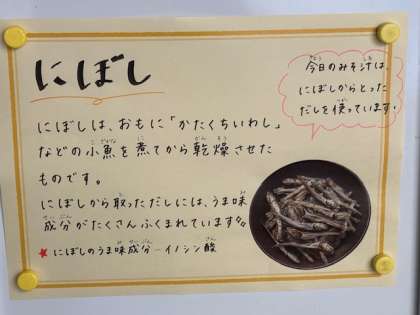 にぼし
今日のみそ汁は、
にぼしからとった
だしを使っています。
にぼしは、おもに「かたくちいわし」
などの小魚を煮てから乾燥させた
ものです。
にぼしから取っただしには、うま味
成分がたくさんふくまれています。
★にぼしのうま味成分…イノシン酸